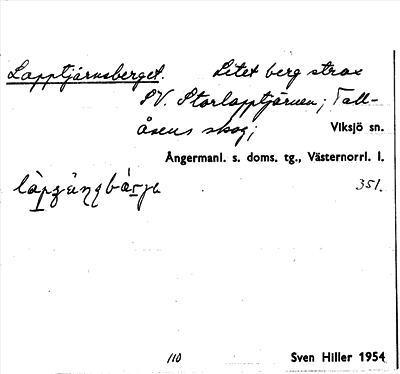 Lapptjärnsberget. Litet berg strax
SV. Storlapptjärnen; Tall-
åsens skog; Viksjö sn.
Ångermanl. s. doms. tg., Västernorrl. l.
351.
110 Sven Hiller 1954